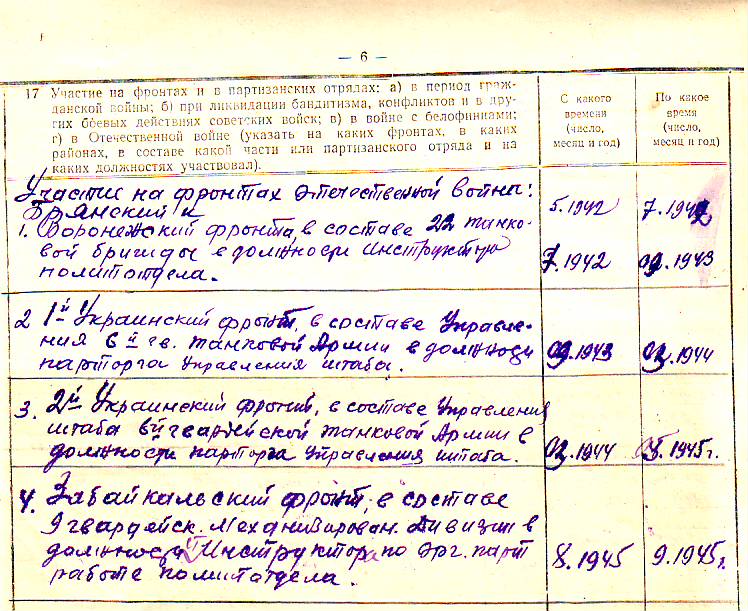 — 6 —
17 Участие на фронтах и в партизанских отрядах: а) в период граж-
данской войны; б) при ликвидации бандитизма, конфликтов и в дру-
гих боевых действиях советских войск; в) в войне с белофиннами;
г) в Отечественной войне (указать на каких фронтах, в каких
районах, в составе какой части или партизанского отряда и на
каких должностях участвовал).
С какого
времени
(число,
месяц и год)
По какое
время
(число,
месяц и год)
Участие на фронтах Отечественной войны:
Брянский и 5.1942 7.1942
1. Воронежский фронта, в составе 22 танко-
вой бригады в должности Инструктора 7.1942 09.1943
политотдела.
2 1й Украинский фронт, в составе Управле-
ния 6й гв. танковой Армии в должности 09.1943 03.1944
парторга Управления штаба.
3. 2й Украинский фронт, в составе Управления
штаба 6й гвардейской танковой Армии в
должности парторга Управления штаба. 03.1944 05.1945г.
4. Забайкальский фронт, в составе
9 гвардейск. Механизирован. Дивизии в
должности Инструктора по Орг. парт
работе политотдела. 8.1945 9.1945г.